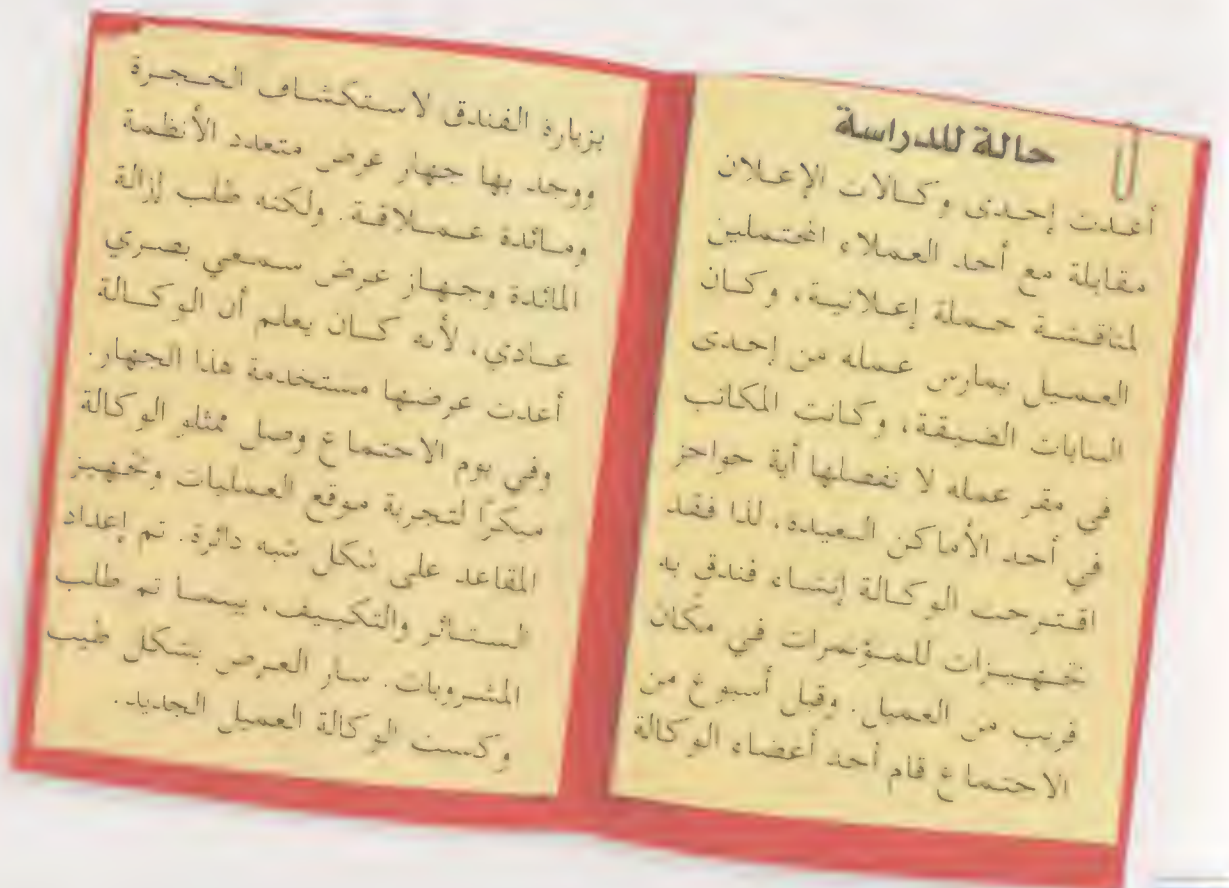 حالة للدراسة
أعدت إحدى وكالات الإعلان
مقابلة مع أحد العملاء المحتملين
لمناقشة حملة إعلانية، وكان
العميل يمارس عمله من إحدى
البنايات الضيقة، وكانت المكاتب
في مقر عمله لا تفصلها أية حواجز
في أحد الأماكن البعيدة، لذا فقد
اقترحت الوكالة إنشاء فندق به
تجهيزات للمؤتمرات في مكان
قريب من العميل. وقبل أسبوع من
الاجتماع قام أحد أعضاء الوكالة
بزيارة الفندق لاستكشاف الحجرة
ووجد بها جهاز عرض متعدد الأنظمة
ومائدة عملاقة. ولكنه طلب إزالة
المائدة وجهاز عرض سمعي بصري
عادي، لأنه كان يعلم أن الوكالة
أعدت عرضها مستخدمة هذا الجهاز.
وفي يوم الاجتماع وصل ممثلو الوكالة
مبكرًا لتجربة موقع العمليات وتجهيز
المقاعد على شكل شبه دائرة. تم إعداد
الستائر والتكييف، بينما تم طلب
المشروبات. سار العرض بشكل طيب
وكسبت الوكالة العميل الجديد.